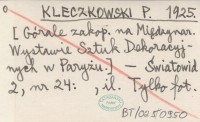 KLECZKOWSKI P. 1925.
[Górale zakop. na Międzynar.
Wystawie Sztuk Dekoracyj-
nych w Paryżu.] — Światowid
2, nr 24: , il. Tylko fot.
BT/0250350